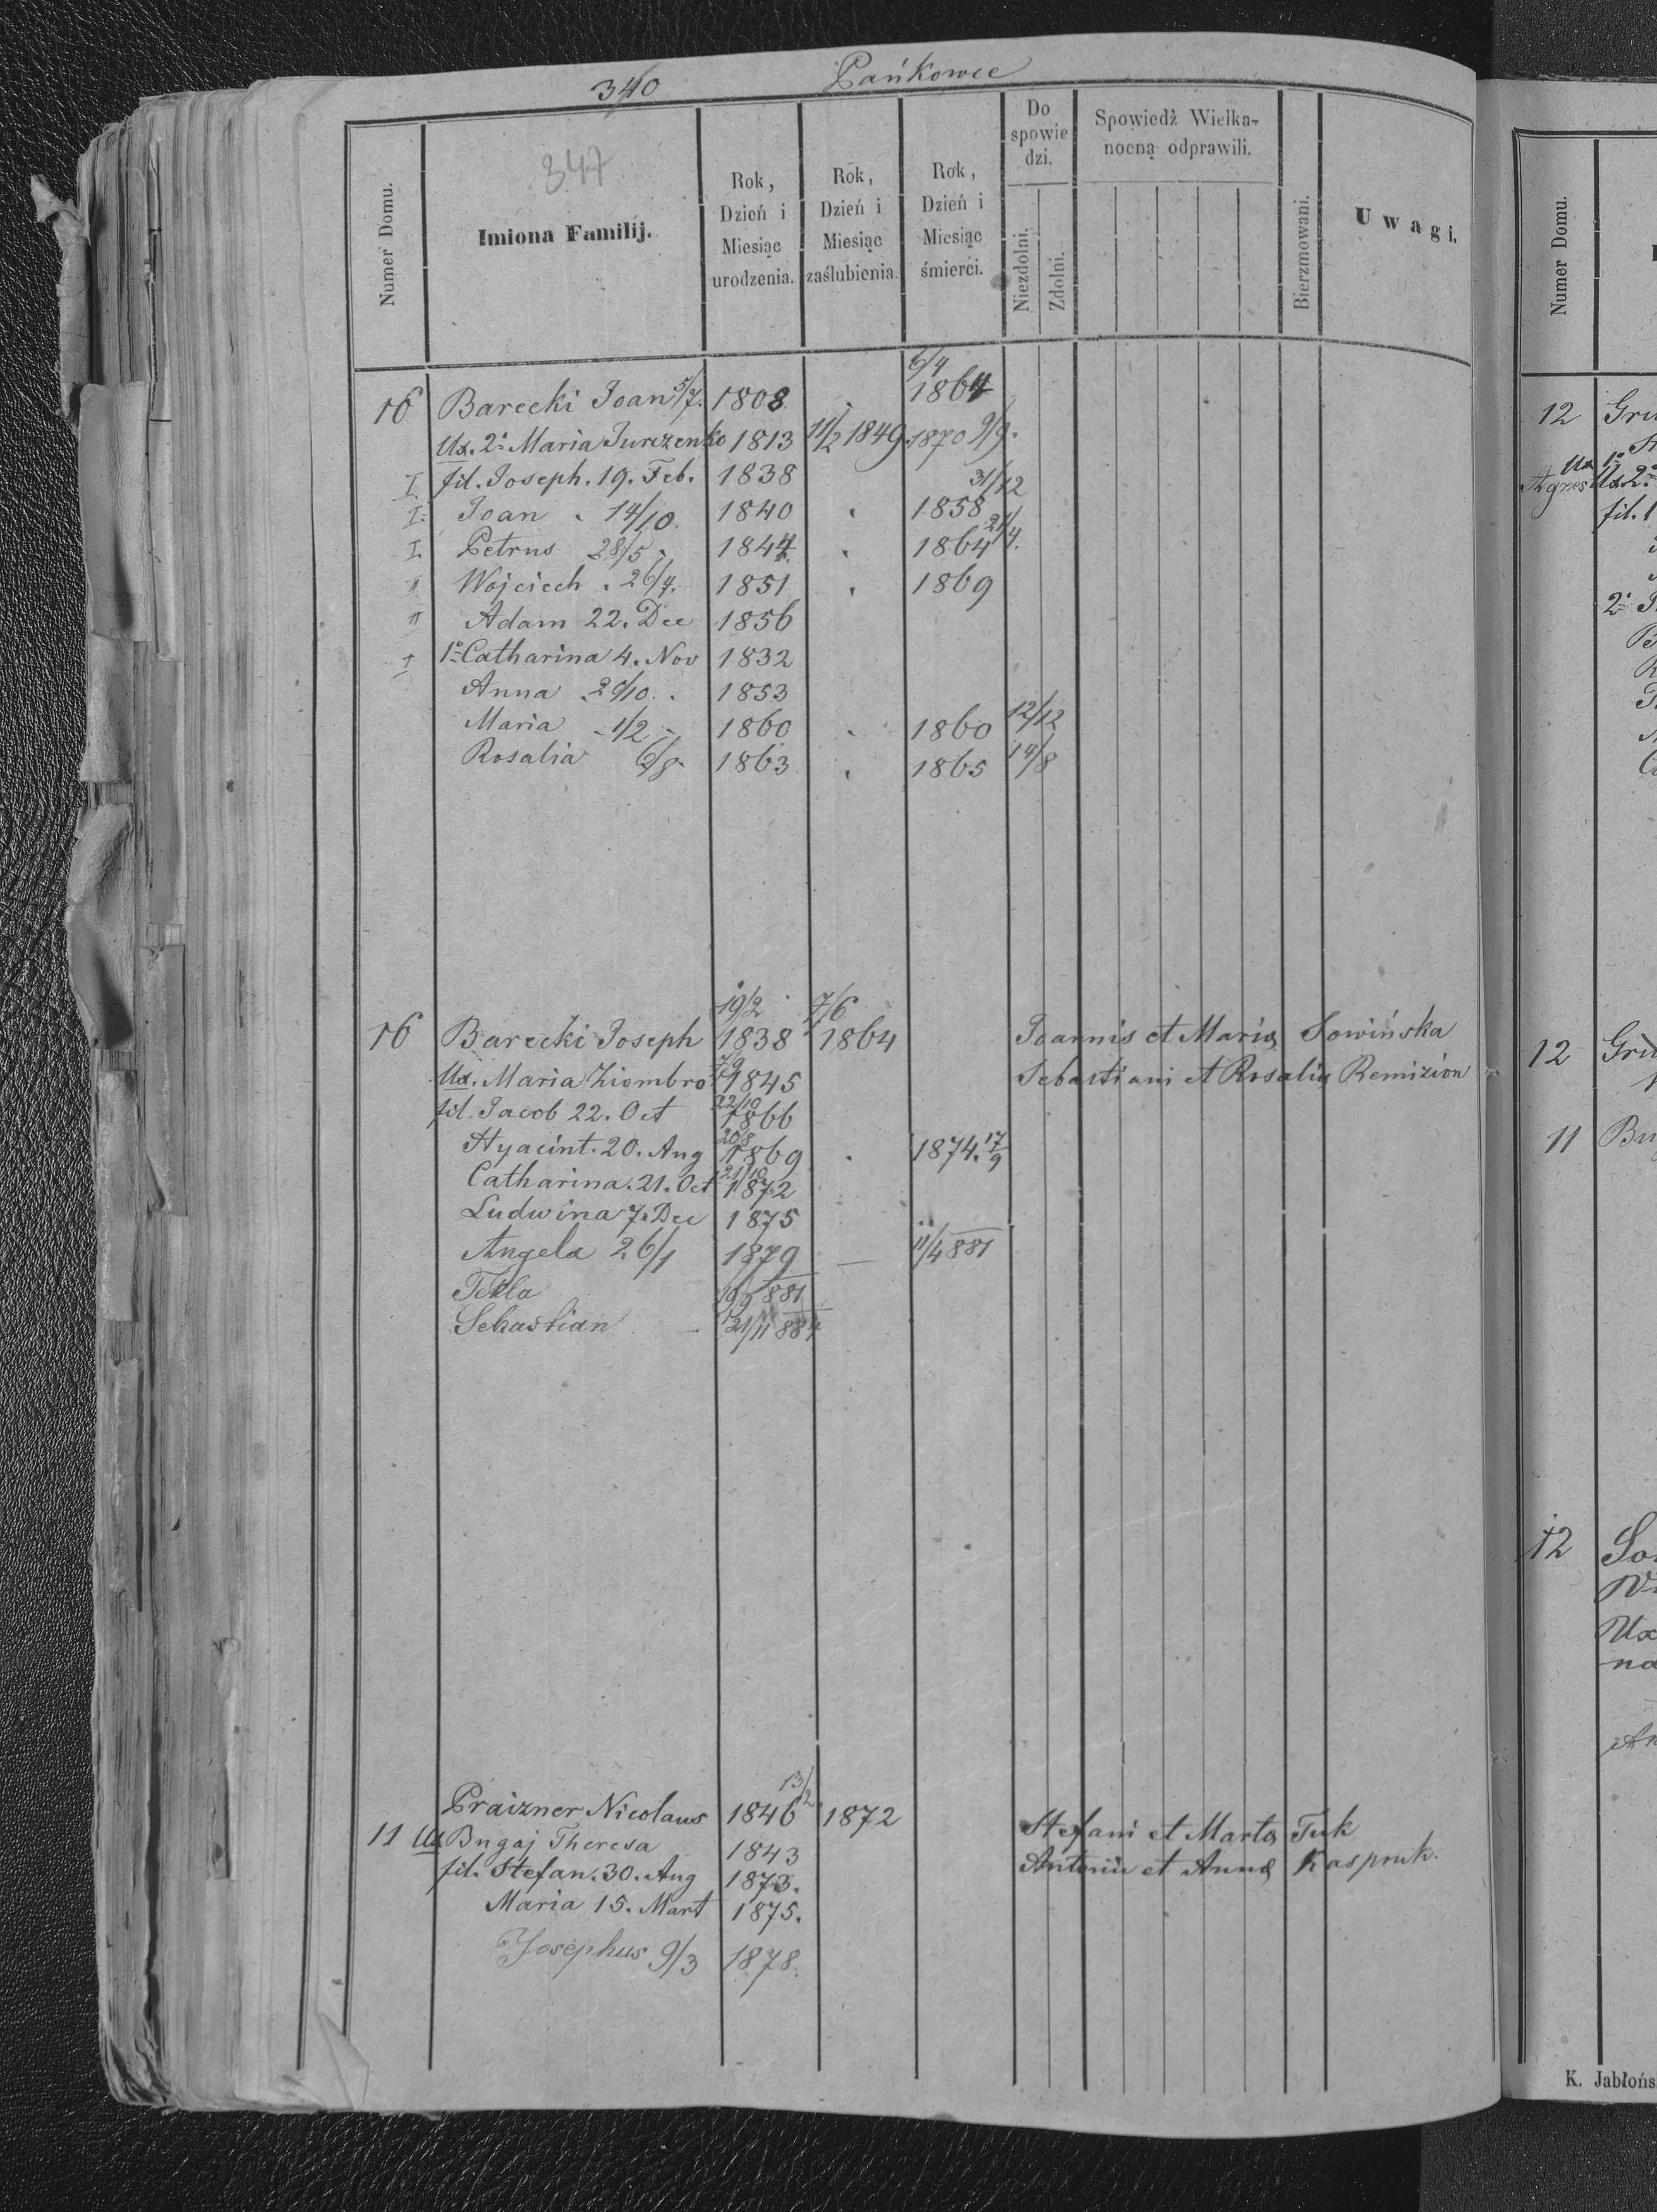 340 Pańkowce
347
Numer Domu.
Imiona Familij.
Rok, Dzień i Miesiąc urodzenia.
Rok, Dzień i Miesiąc zaślubienia.
Rok, Dzień i Miesiąc śmierci.
Do spowie dzi.
Niezdolni.
Zdolni.
Spowiedź Wielka- nocną odprawili.
Bierzmowani.
Uwagi.
16 Barecki Joan 5/7. 1808 6/4 1864
Ux. 2° Maria Jurczenko 1813 11/2 1849 1870 9/9.
I. fil. Joseph. 19. Feb. 1838
I. Joan . 14/10. 1840 . 1858 31/12
I. Petrus 28/5 . 1844 . 1864 21/4.
II Wojciech . 26/4. 1851 . 1869
II Adam 22. Dec 1856
I 1° Catharina 4. Nov 1832
Anna . 20/10 . 1853
Maria - 1/2 - 1860 . 1860 12/12
Rosalia 6/8 1863 . 1865 14/8
16 Barecki Joseph 19/2 1838 7/6 1864 Joannis et Maria Sowińska
Ux. Maria Ziombro 7/9 1845 Sebastiani et Rosalia Remizion
fil. Jacob 22. Oct 22/10 1866
Hyacint. 20. Aug 20/8 1869 . 1874. 17/9
Catharina. 21. Oct 21/10 1872
Ludwina 7. Dec 1875
Angela 26/1 1879 — 11/4 881
Tekla 19/9 881
Sebastian - 21/11 884
Praizner Nicolaus 1846 13/2 1872 Stefani et Marta Tuk
11 Ux Bugaj Theresa 1843 Antonii et Anna Kaspruk.
fil. Stefan. 30. Aug 1873.
Maria 15. Mart 1875.
Josephus 9/3 1878.
Numer Domu.
12 Gru
Ux 1°
Agnes Ux. 2°
fil. 1
2°
12 Gru
11 Bu
12
Ux
na
K. Jabłońs